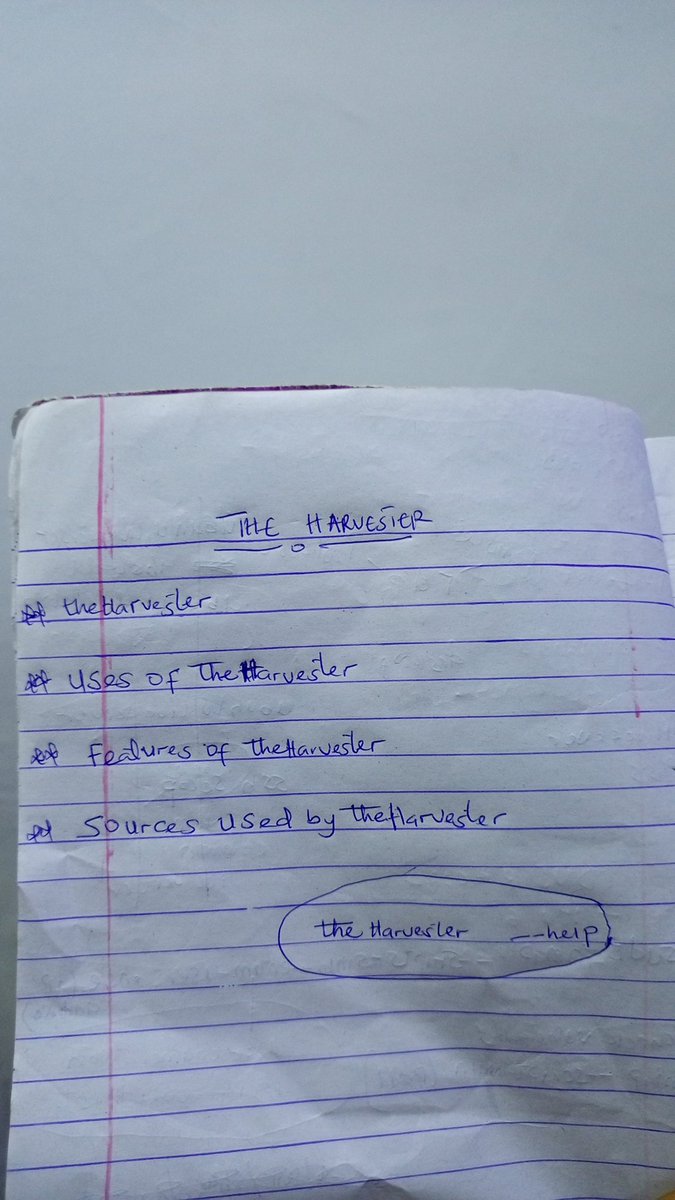 THE HARVESTER
theHarvester
Uses of TheHarvester
Features of theHarvester
Sources used by theHarvester
theHarvester --help